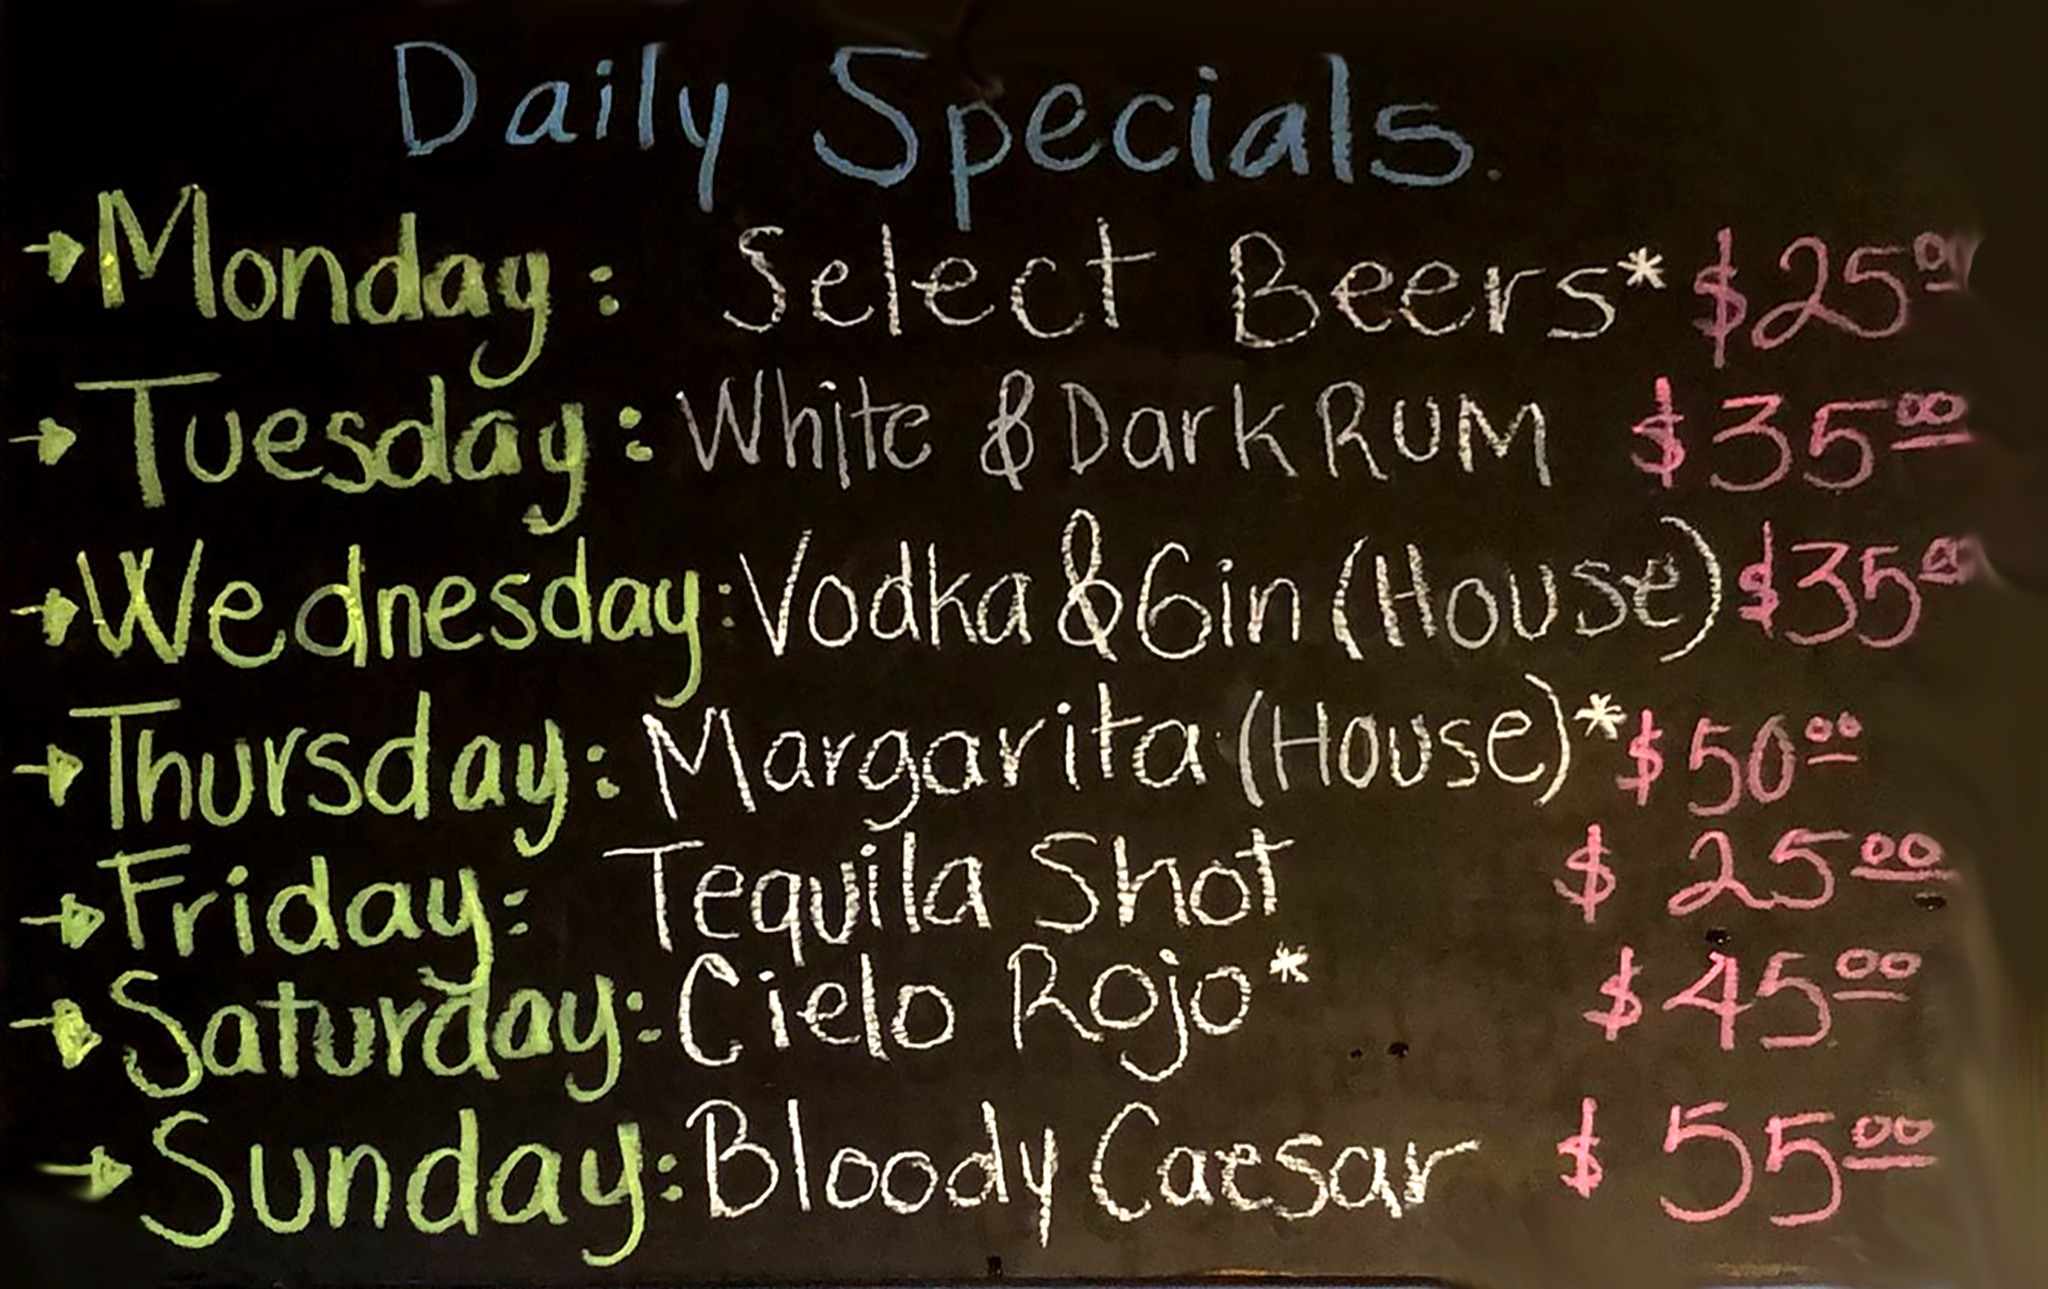 Daily Specials
→Monday: Select Beers* $25⁰⁰
→Tuesday: White & Dark RUM $35⁰⁰
→Wednesday: Vodka & Gin (House) $35⁰⁰
→Thursday: Margarita (House)* $50⁰⁰
→Friday: Tequila Shot $25⁰⁰
→Saturday: Cielo Rojo* $45⁰⁰
→Sunday: Bloody Caesar $55⁰⁰